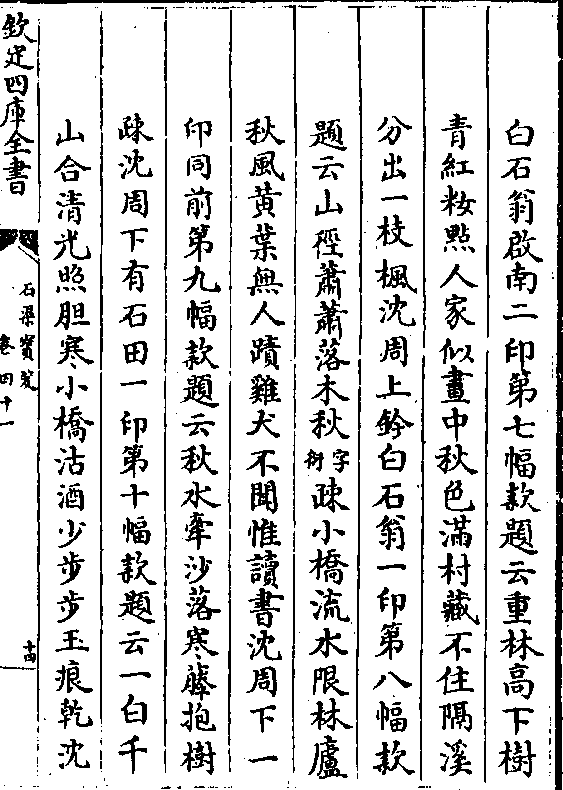 白石翁啟南二印第七幅款題云重林高下樹
青紅妝點人家似畫中秋色滿村藏不住隔溪
分出一枝楓沈周上鈐白石翁一印第八幅款
題云山徑蕭蕭落木秋字衍疎小橋流水限林廬
秋風黃葉無人蹟雞犬不聞惟讀書沈周下一
印同前第九幅款題云秋水牽沙落寒藤抱樹
疎沈周下有石田一印第十幅款題云一白千
山合清光照胆寒小橋沽酒少步步玉痕乾沈
欽定四庫全書
石渠寳笈
卷四十一
十四